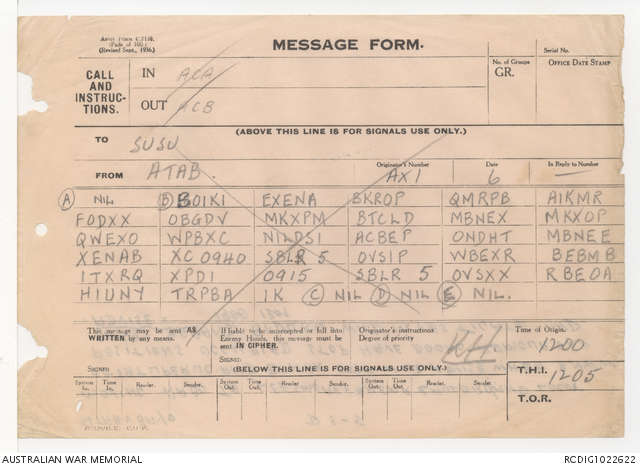 (Revised Sept., 1936.)
MESSAGE FORM.
Serial No.
CALL AND INSTRUCTIONS.
IN ACA
OUT ACB
No. of Groups
GR.
OFFICE DATE STAMP
(ABOVE THIS LINE IS FOR SIGNALS USE ONLY.)
TO SUSU
FROM ATAB.
Originator's Number AX1
Date 6
In Reply to Number —
(A) NIL (B) BOIKI EXENA BKROP QMRPB AIKMR
FODXX OBGDV MKXPM BTCLD MBNEX MKXOP
QWEXO WPBXC NILDSI ACBEP ONDHT MBNEE
XENAB XC 0940 SBLR 5 OVSIP WBEXR BEBMB
ITXRQ XPDI 0915 SBLR 5 OVSXX RBEOA
HIUNY TRPBA IK (C) NIL (D) NIL (E) NIL.
This message may be sent AS WRITTEN by any means.
If liable to be intercepted or fall into Enemy Hands, this message must be sent IN CIPHER.
Originator's instructions
Degree of priority
Time of Origin.
1200
SIGNED
SIGNED
(BELOW THIS LINE IS FOR SIGNALS USE ONLY.)
T.H.I. 1205
System In Time In. Reader. Sender. System Out. Time Out. Reader. Sender. System Out. Time Out. Reader. Sender.
T.O.R.
AUSTRALIAN WAR MEMORIAL
RCDIG1022622